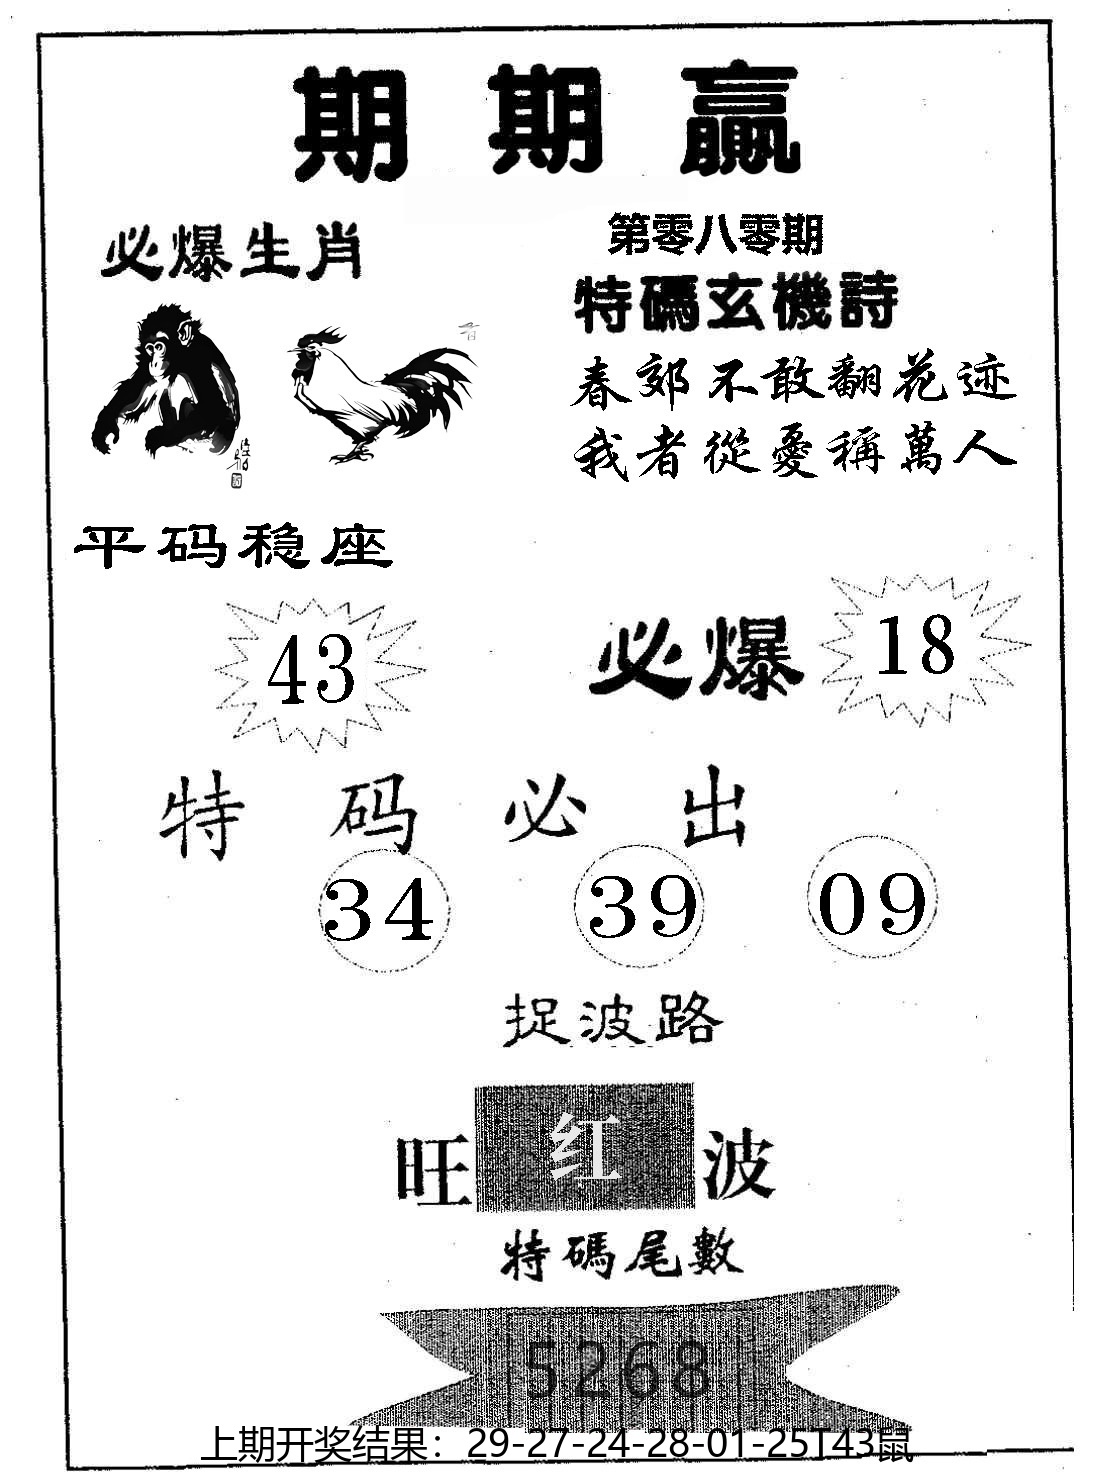 期期赢
必爆生肖
第零八零期
特碼玄機詩
春郊不敢翻花迹
我者從憂稱萬人
平码稳座
43
必爆 18
特码必出
34 39 09
捉波路
旺 红 波
特碼尾數
5268
上期开奖结果：29-27-24-28-01-25T43鼠